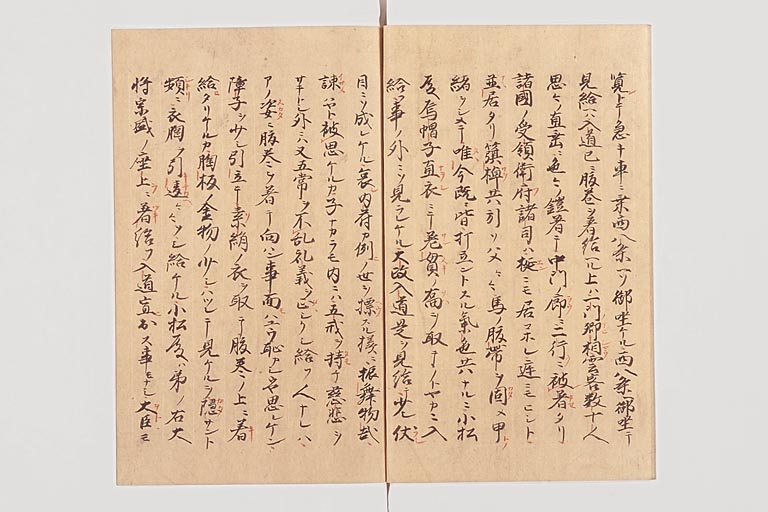 寛上下ノ急キ車ニ乗西八条ヘソ御坐ケル西八条御坐テ
見給ヘハ入道已ニ腹巻ヲ着給ヘル上ハ一門卿相雲客数十人
思々ノ直垂ニ色々ノ鎧着テ中門ノ廊ニ二行ニ被着タリ
諸國ノ受領衛府諸司ハ椽ニモ居コホレ庭ニモヒシト
並居タリ簱棹共引ソハメ々々馬ノ腹帯ヲ固メ甲ノ
緒ヲシメテ唯今既ニ皆打立ントスル氣色共ナルニ小松
殿烏帽子直衣ニテ
給事ノ外ニソ見ラレケル太政入道是ヲ見給テ少シ伏
目ニソ成レケル哀内府カ例ノ世ヲ摽スル様ニ振舞物哉
諌ハヤト被思ケルカ子ナカラモ内ニハ五戒ヲ持チ慈悲ヲ
サキトシ外ニハ又五常ヲ不乱礼義ヲ正シクシ給フ人ナレハ
アノ姿ニ腹巻ヲ着テ向ハン事面ハユウ恥カシクヤ思レケン
障子ヲ少シ引立テ素絹ノ衣ヲ取テ腹巻ノ上ニ着
給タリケルカ胸板ノ金物ノ少シハツレテ見ケルヲ隠サント
頻ニ衣胸ヲ引違々々ソシ給ケル小松殿ハ弟ノ右大
将宗盛ノ座上ニ着給フ入道宣出ス事モナシ大臣モ